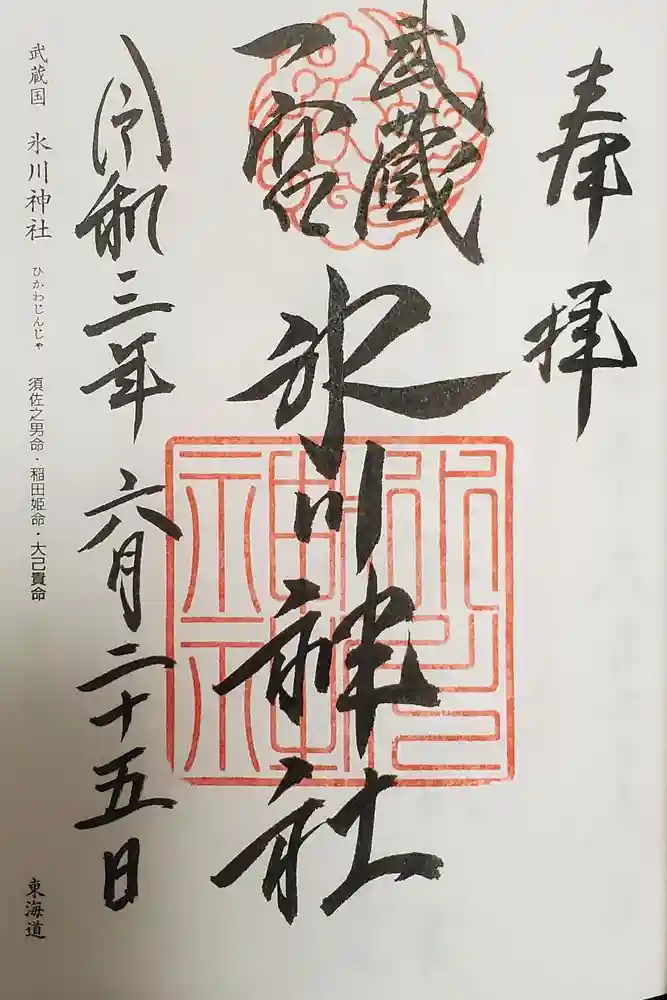 奉拝
武蔵
一宮
氷川神社
令和三年六月二十五日
武蔵国 氷川神社 ひかわじんじゃ 須佐之男命・稲田姫命・大己貴命
東海道